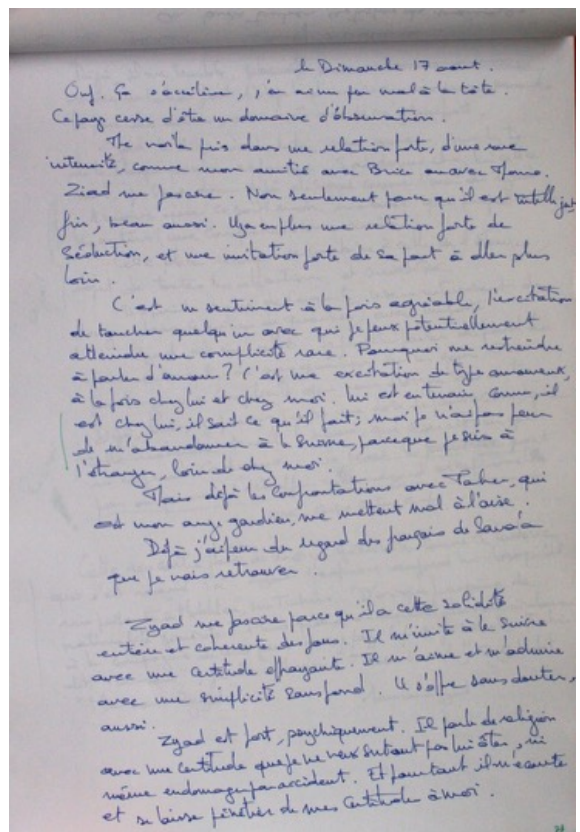 le Dimanche 17 aout.
Ouf. Ça s'accélère, j'en ai un peu mal à la tête.
Ce pays cesse d'être un domaine d'observation.
Me voilà pris dans une relation forte, d'une rare
intensité, comme mon amitié avec Brice ou avec
Ziad me fascine. Non seulement parce qu'il est intelligent
fin, beau aussi. Il y a en plus une relation forte de
séduction, et une invitation forte de sa part à aller plus
loin.
C'est un sentiment à la fois agréable, l'excitation
de toucher quelqu'un avec qui je peux potentiellement
atteindre une complicité rare. Pourquoi me restreindre
à parler d'amour ? C'est une excitation de type amoureux,
à la fois chez lui et chez moi. Lui est en terrain connu, il
est chez lui, il sait ce qu'il fait ; moi je n'ai pas peur
de m'abandonner à le suivre, parce que je suis à
l'étranger, loin de chez moi.
Mais déjà les confrontations avec Taher, qui
est mon ange gardien, me mettent mal à l'aise.
Déjà j'ai peur du regard des français de Sana'a
que je vais retrouver.
Zyad me fascine parce qu'il a cette solidité
entière et cohérente des fous. Il m'invite à le suivre
avec une certitude effrayante. Il m'aime et m'admire
avec une simplicité sans fond. Il s'offre sans douter,
aussi.
Zyad est fort, psychiquement. Il parle de religion
avec une certitude que je ne veux surtout pas lui ôter, ni
même endommager par accident. Et pourtant il m'écoute
et se laisse pénétrer de mes certitudes à moi.